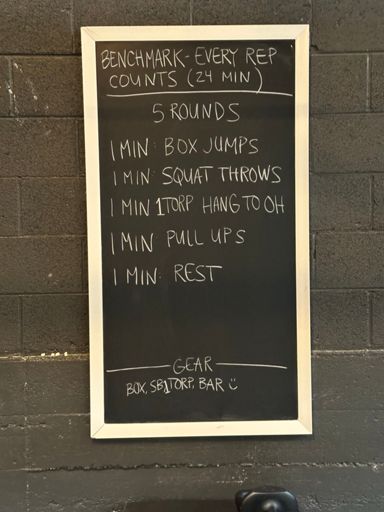 BENCHMARK - EVERY REP
COUNTS (24 MIN)
5 ROUNDS
1 MIN: BOX JUMPS
1 MIN: SQUAT THROWS
1 MIN 1TORP HANG TO OH
1 MIN: PULL UPS
1 MIN: REST
GEAR
BOX, SB, 1TORP, BAR ☺